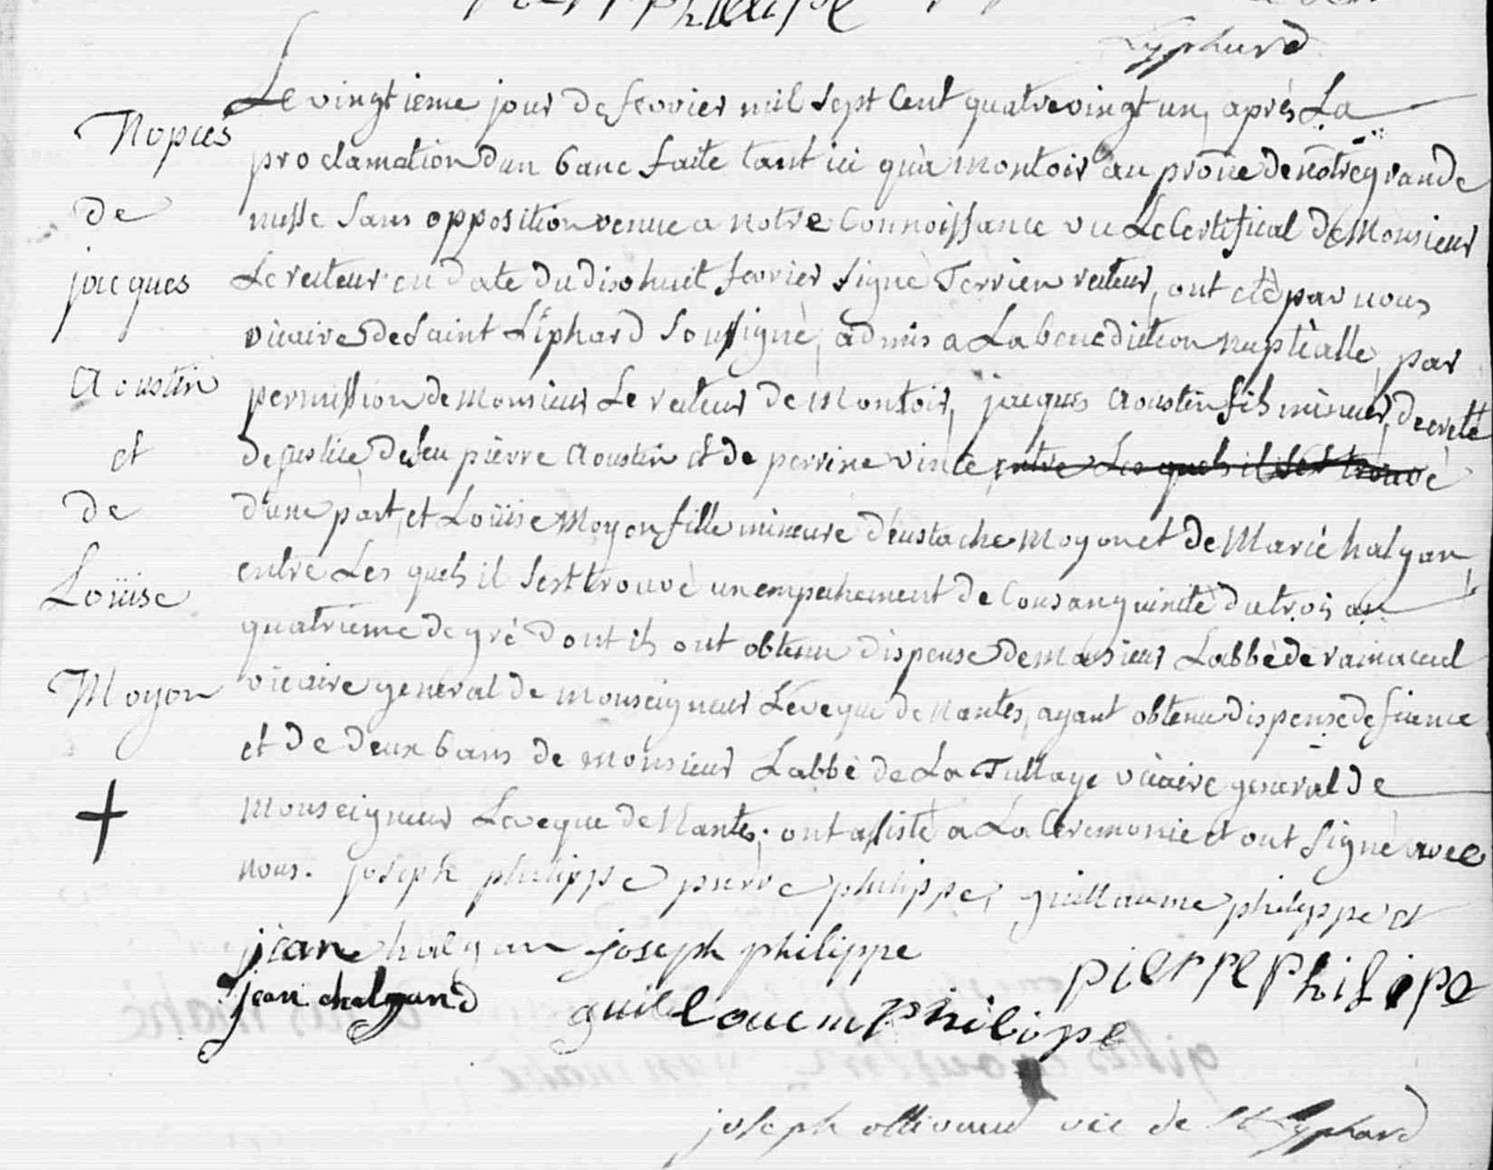 philippe
Lyphard
Le vingtieme jour de fevrier mil sept cent quatrevingt un, après La
proclamation d'un banc faite tant ici qu'à montoir au prône de nôtre grande
messe sans opposition venue a notre connoissance vu Le Certifical de Monsieur
Le recteur en date du dixhuit fevrier signé Terrien recteur, ont etè par nous
vicaire de saint Liphard soussigné, admis a La benediction nuptialle, par
permission de Monsieur Le recteur de Montoir, jacques Aoustin fils mineur, decreté
de justice de feu pierre Aoustin et de perrine vince entre Les quels il s'est trouvè
d'une part, et Loüise Moyon fille mineure d'eustache Moyon et de Marie halgan,
entre Les quels il s'est trouvè un empechement de Consanguinité du trois au
quatrieme degré dont ils ont obtenu dispense de Monsieur L'abbé de
vicaire general de Monseigneur L'eveque de Nantes, ayant obtenu dispense de fiance
et de deux bans de Monsieur L'abbé de La Tullaye vicaire general de
Monseigneur L'eveque de Nantes; ont assisté a La Ceremonie et ont signé avec
nous. joseph philippe pierre philippe, guillaume philippe et
jean halgan joseph philippe
pierre philipe
jean chalgand
guilloucem philippe
joseph ollivaud vic de St Lyphard
Nopces
de
jacques
Aoustin
et
de
Loüise
Moyon